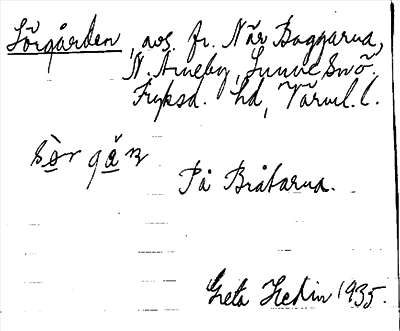 Sörgården, avs. fr. När Baggarna,
N. Arneby, Sunne Snö.
Fryksd. hd, Värml. l.
sö̀r gǎ̀n
På Bråtarna.
Greta Hedin 1935.